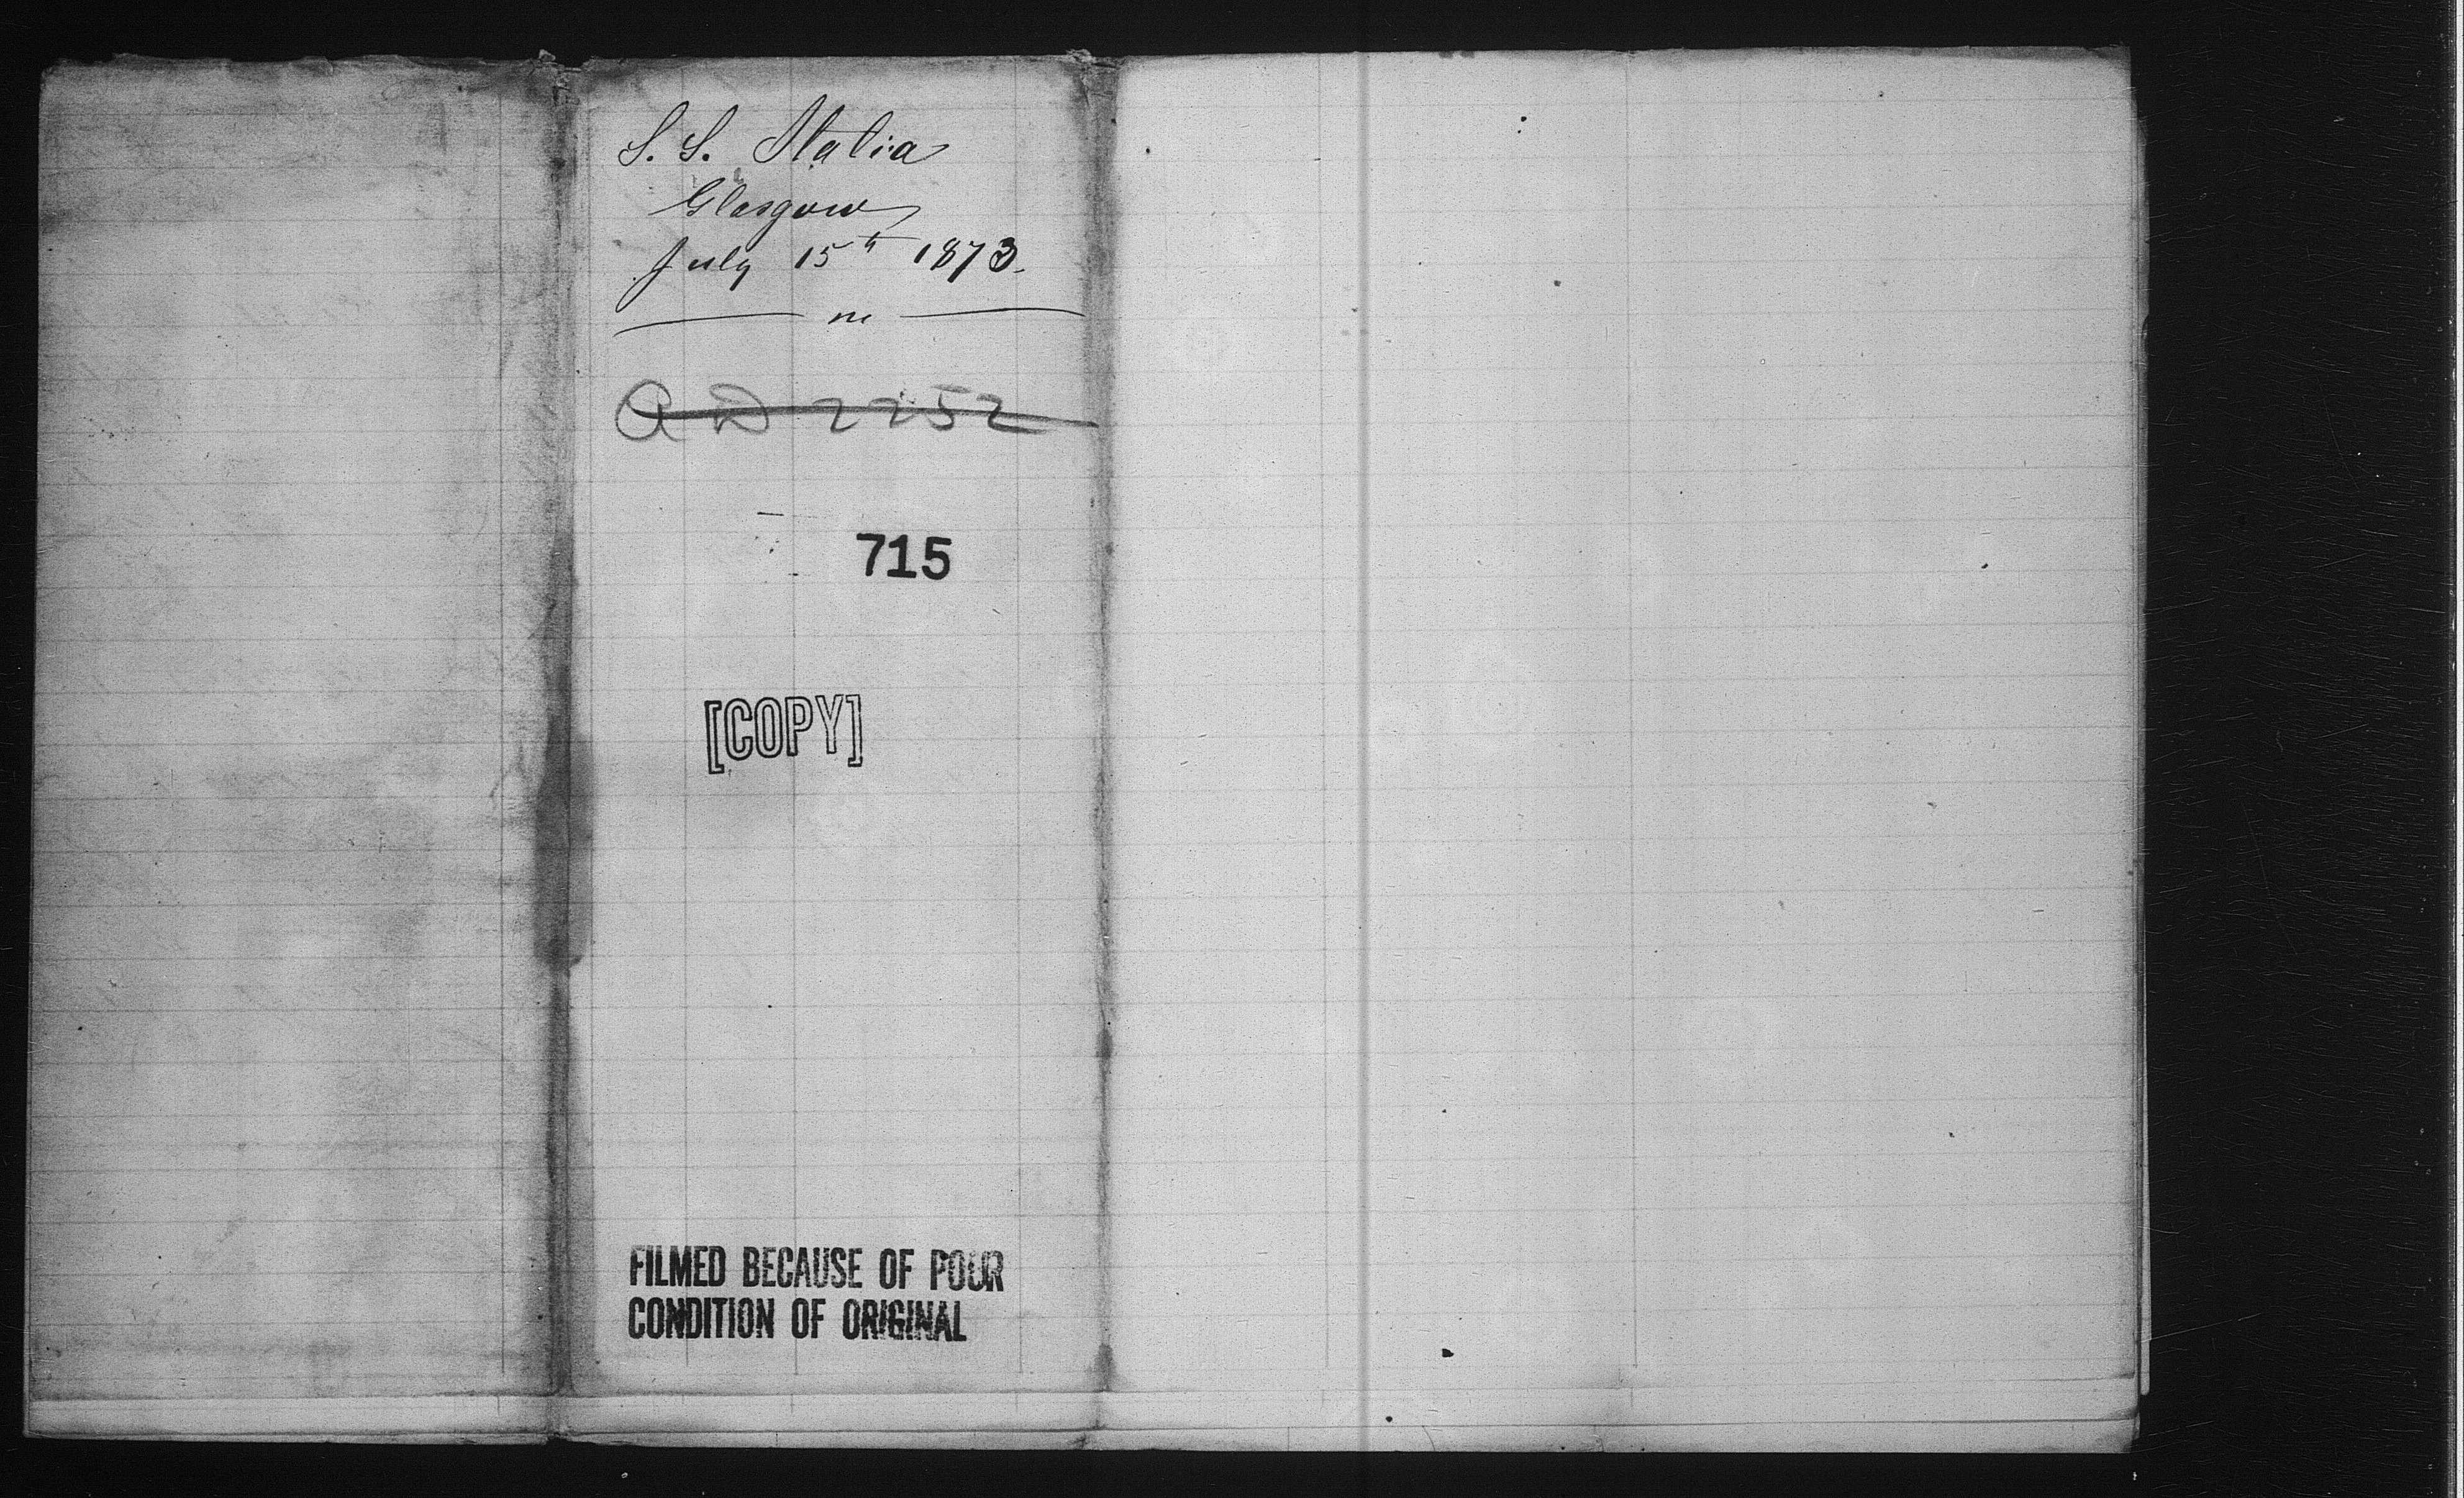 S. S. Italia
Glasgow
July 15th 1873.
m
AD 2252
715
[COPY]
FILMED BECAUSE OF POOR
CONDITION OF ORIGINAL